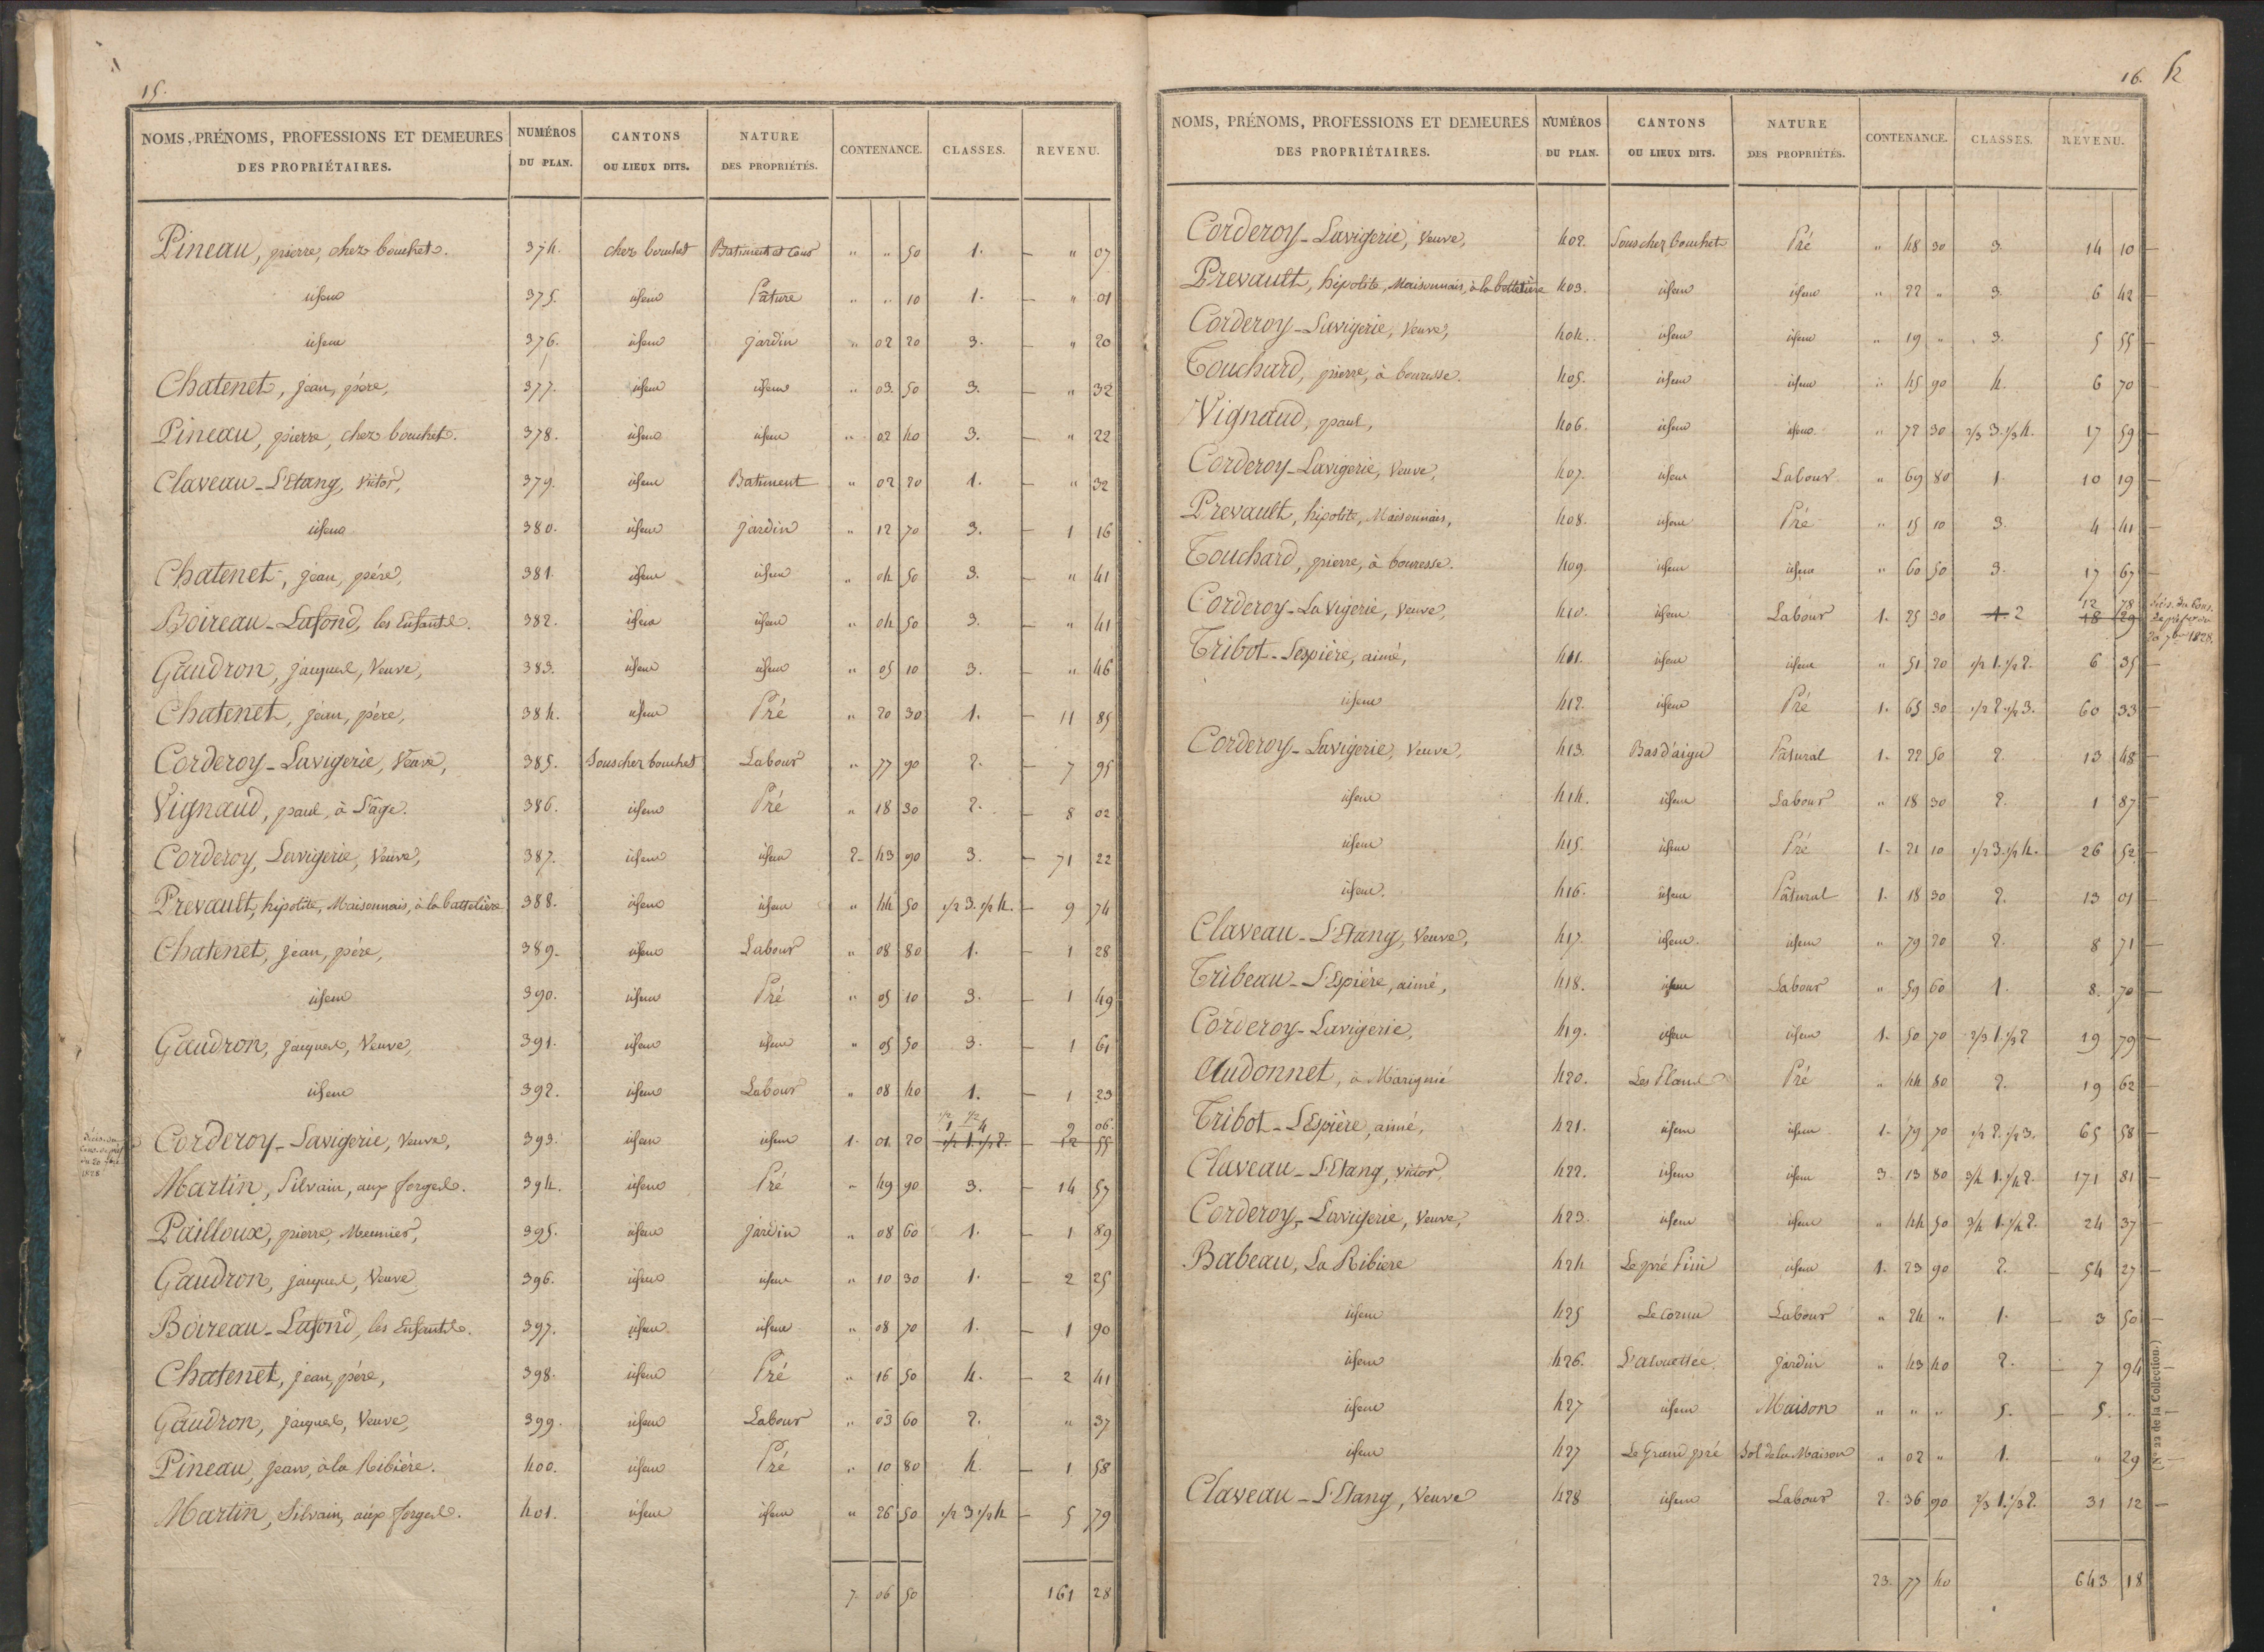 15.
NOMS, PRÉNOMS, PROFESSIONS ET DEMEURES DES PROPRIÉTAIRES. NUMÉROS DU PLAN. CANTONS OU LIEUX DITS. NATURE DES PROPRIÉTÉS. CONTENANCE. CLASSES. REVENU.
Pineau, pierre, chez bouchet. 374. chez bouchet Batiment et Cour " " 50 1. " 07
idem 375. idem Pâture " " 10 1. " 01
idem 376. idem jardin " 02 20 3. " 20
Chatenet, jean, père, 377. idem idem " 03 50 3. " 32
Pineau, pierre, chez bouchet. 378. idem idem " 02 40 3. " 22
Claveau-L'Etang, Victor, 379. idem Batiment " 02 20 1. " 32
idem 380. idem jardin " 12 70 3. 1 16
Chatenet, jean, père, 381. idem idem " 04 50 3. " 41
Boireau-Lafond, les Enfants. 382. idem idem " 04 50 3. " 41
Gaudron, jacques, Veuve, 383. idem idem " 05 10 3. " 46
Chatenet, jean, père, 384. idem Pré " 20 30 1. 11 85
Corderoy-Lavigerie, Veuve, 385. Sous chez bouchet Labour " 77 90 2. 7 95
Vignaud, paul, à L'âge. 386. idem Pré " 18 30 2. 8 02
Corderoy, Lavigerie, Veuve, 387. idem idem 2. 43 90 3. 71 22
Prevault, hipolite, Maisonnais, à la battelière 388. idem idem " 44 50 1/2 3. 1/2 4. 9 74
Chatenet, jean, père, 389. idem Labour " 08 80 1. 1 28
idem 390. idem Pré " 05 10 3. 1 49
Gaudron, jacques, Veuve, 391. idem idem " 05 50 3. 1 61
idem 392. idem Labour " 08 40 1. 1 23
1/2 1 1/2 4 9 06
Corderoy-Lavigerie, Veuve, 393. idem idem 1. 01 20 1/2 1. 1/2 2. 12 55
Martin, Silvain, aux forges. 394. idem Pré " 49 90 3. 14 57
Pailloux, pierre, Meunier, 395. idem jardin " 08 60 1. 1 89
Gaudron, jacques, Veuve 396. idem idem " 10 30 1. 2 25
Boireau-Lafond, les Enfants. 397. idem idem " 08 70 1. 1 90
Chatenet, jean, père, 398. idem Pré " 16 50 4. 2 41
Gaudron, jacques, Veuve, 399. idem Labour " 03 60 2. " 37
Pineau, jean, à la Ribière. 400. idem Pré " 10 80 4. 1 58
Martin, Silvain, aux forges. 401. idem idem " 26 50 1/2 3 1/2 4 5 79
7. 06 50 161 28
16.
NOMS, PRÉNOMS, PROFESSIONS ET DEMEURES DES PROPRIÉTAIRES. NUMÉROS DU PLAN. CANTONS OU LIEUX DITS. NATURE DES PROPRIÉTÉS. CONTENANCE. CLASSES. REVENU.
Corderoy-Lavigerie, Veuve, 402. Sous chez bouchet Pré " 48 30 3. 14 10
Prevault, hipolite, Maisonnais, à la battelière 403. idem idem " 22 " 3. 6 42
Corderoy-Lavigerie, Veuve, 404. idem idem " 19 " 3. 5 55
Touchard, pierre, à bouresse. 405. idem idem " 45 90 4. 6 70
Vignaud, paul, 406. idem idem " 72 30 2/3 3. 1/3 4. 17 59
Corderoy-Lavigerie, Veuve, 407. idem Labour " 69 80 1. 10 19
Prevault, hipolite, Maisonnais, 408. idem Pré " 15 10 3. 4 41
Touchard, pierre, à bouresse. 409. idem idem " 60 50 3. 17 67
12 78
Corderoy-La Vigerie, Veuve, 410. idem Labour 1. 25 30 1. 2 18 29
Tribot-Lespière, aimé, 411. idem idem " 51 20 1/2 1. 1/2 2. 6 35
idem 412. idem Pré 1. 65 30 1/2 2 1/2 3. 60 33
Corderoy-Lavigerie, Veuve, 413. Bas d'aigu Pâtural 1. 22 50 2. 13 48
idem 414. idem Labour " 18 30 2. 1 87
idem 415. idem Pré 1. 21 10 1/2 3. 1/2 4. 26 52
idem. 416. idem Pâtural 1. 18 30 2. 13 01
Claveau-L'Etang, Veuve, 417. idem. idem " 79 20 2. 8 71
Tribeau-L'Espière, aimé, 418. idem Labour " 59 60 1. 8. 70
Corderoy-Lavigerie, 419. idem idem 1. 50 70 2/3 1. 1/3 2 19 79
Audonnet, à Marignié 420. Les Plans Pré " 44 80 2. 19 62
Tribot-L'Espière, aimé, 421. idem idem 1. 79 70 1/2 2. 1/2 3. 65 58
Claveau-L'Etang, Victor, 422. idem idem 3. 13 80 3/4 1. 1/4 2. 171 81
Corderoy-Lavigerie, Veuve, 423. idem idem " 44 50 3/4 1. 1/4 2. 24 37
Babeau, La Ribiere 424 Le pré Fini idem 1. 23 90 2. 54 27
idem 425 Le Cornu Labour " 24 " 1. 3 50
idem 426. L'alouettée jardin " 43 40 2. 7 94
idem 427 idem Maison " " " 5. 5. "
idem 427 Le Grand pré Sol de la Maison " 02 " 1. " 29
Claveau-L'Etang, Veuve 428 idem Labour 2. 36 90 2/3 1. 1/3 2. 31 12
23. 77 40 643 18
(N° 22 de la Collection.)